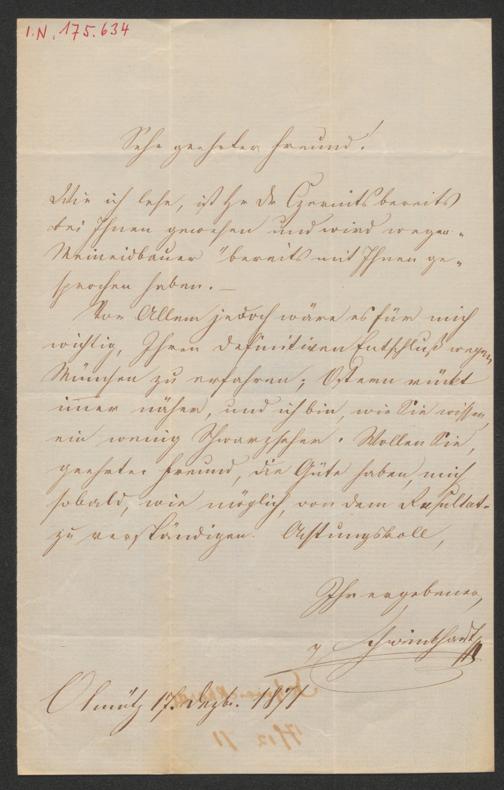 I.N. 175.634
Sehr geehrter Freund!
Wie ich lese, ist Hr Dr Czernits bereits
bei Ihnen gewesen und wird wegen „
Meineidbauer" bereits mit Ihnen ge-
sprochen haben. —
Vor Allem jedoch wäre es für mich
wichtig, Ihren definitiven Entschluß wegen
München zu erfahren; Ostern rückt
immer näher, und ich bin, wie Sie wissen,
ein wenig Schwarzseher. Wollen Sie,
geehrter Freund, die Güte haben, mich
sobald, wie möglich, von dem Resultat
zu verständigen. Achtungsvoll,
Ihr ergebener,
Olmütz 17. Dezbr. 1871
17/12 71